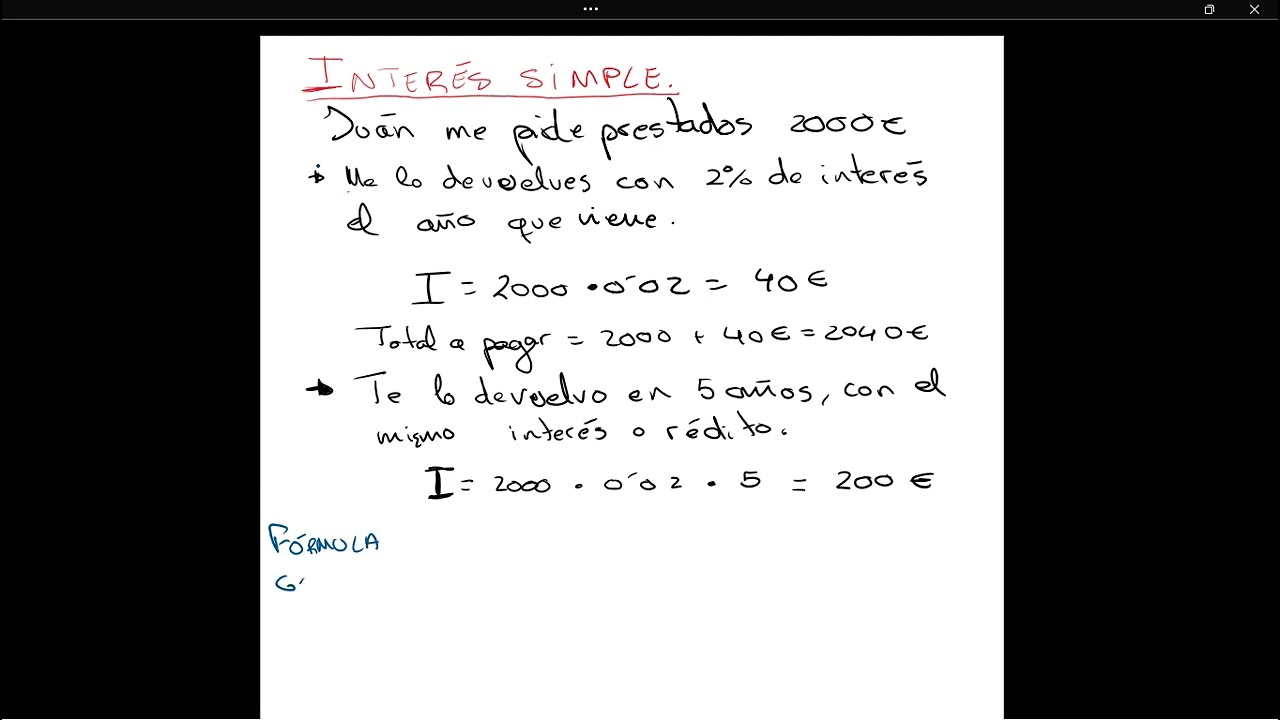 INTERÉS SIMPLE.
Juán me pide prestados 2000€
Me lo devuelves con 2% de interés
el año que viene.
I = 2000 · 0'02 = 40€
Total a pagar = 2000 + 40€ = 2040€
→ Te lo devuelvo en 5 años, con el
mismo interés o rédito.
I = 2000 · 0'02 · 5 = 200 €
FÓRMULA
G